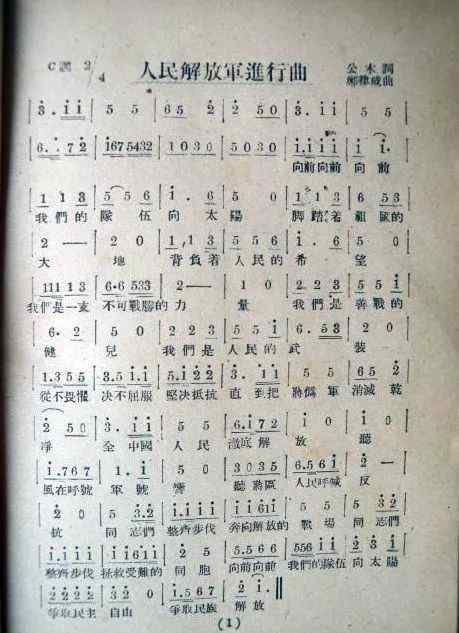 C調 2/4 人民解放軍進行曲 公木詞
鄭律成曲
3. i i | 5 5 | 6 5 2 | 2 5 0 | 3. i i | 5 5
6. . 7 2 | i 6 7 5 4 3 2 | 1 0 3 0 | 5 0 3 0 | i. i i i | i i.
向前向前 向前
1 1 3 | 5 5 6 | i . 6 | 5 0 | 1 1 3 | 6 5 3
我們的 隊伍 向太陽 脚踏着 祖國的
2 — | 2 0 | 1, 1 3 | 5 5 6 | i . 6 | 5 0
大 地 背負着 人民的 希 望
1 1 1 1 1 3 | 6·6 5 3 3 | 2 — | 1 0 | 2 2 3 | 5 5 i
我們是一支 不可戰勝的 力 量 我們是 善戰的
6. 2 | 5 0 | 2 2 3 | 5 5 i | 6. 5 3 | 2 0
健 兒 我們是 人民的 武 裝
1. 3 5 5 | 3. 5 i. i | 5. i 2 2 | 3. i i | 5 5 | 6 5 2
從不畏懼 决不屈服 堅决抵抗 直到把 蔣僞軍 消滅乾
2 5 0 | 3. i i | 5 5 | 6. i 7 2 | i 0 | i 0
淨 全中國 人民 澈底解 放 聽
i . 7 6 7 | 1. i | 5 0 | 3 0 3 5 | 6. 5 6 i | 2 —
風在呼號 軍號 響 聽蔣區 人民呼喊 反
2 0 | 5 3. 2 | i. i i i | i i 6 i i | 5 5 | 5 3 2
抗 同志們 整齊步伐 奔向解放的 戰場 同志們
i. i i i | i i 6 i i | 2 5 | 5. 5 6 6 | 5 5 6 i i | 2 3 i
整齊步伐 拯救受難的 同胞 向前向前 我們的隊伍 向太陽
2 2 2 2 | 3 2 | i 0 | i. 5 6 7 | 2 i. ‖
爭取民主 自由 爭取民族 解放
(1)